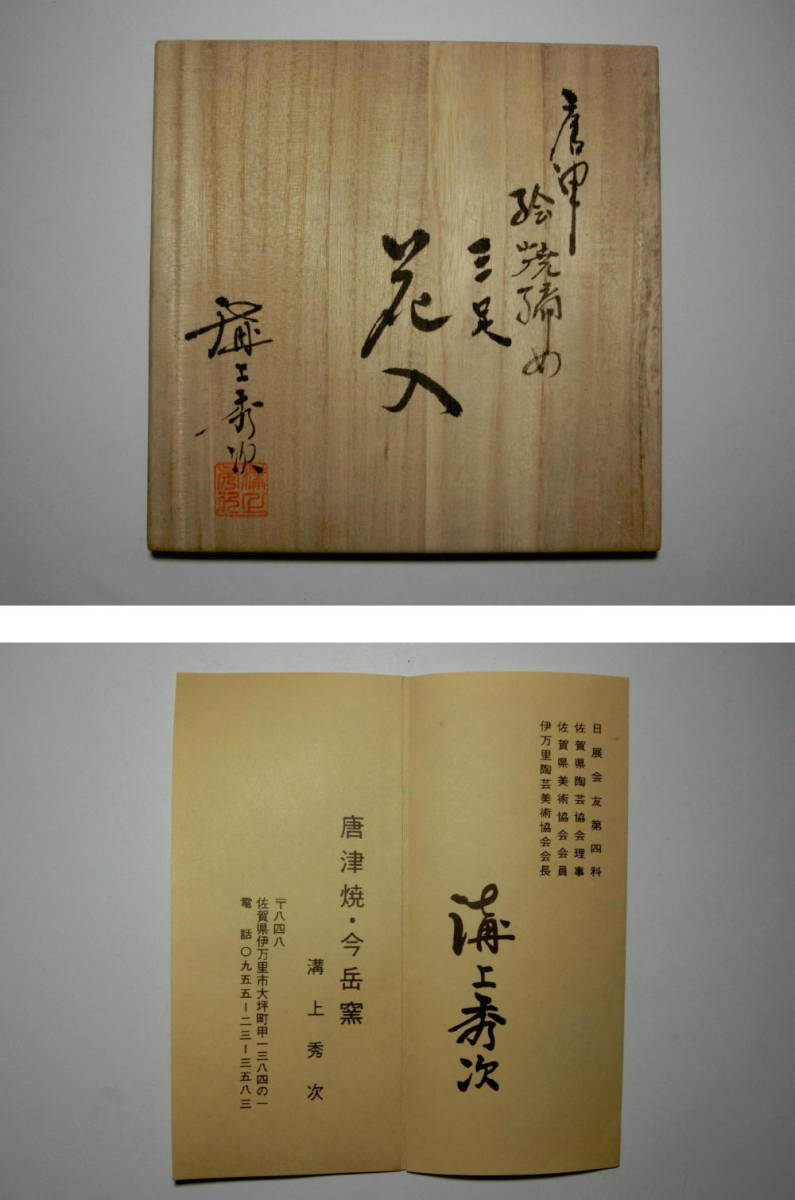 唐津
絵焼締め
三足
花入
溝上秀次
日展会友第四科
佐賀県陶芸協会理事
佐賀県美術協会会員
伊万里陶芸美術協会会長
溝上秀次
唐津焼・今岳窯
溝上秀次
〒八四八
佐賀県伊万里市大坪町甲一三八四の一
電話〇九五五ー二三ー三五八三